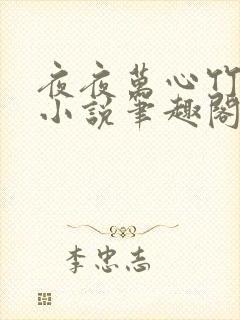 夜夜萬心竹
小説筆趣閣
李忠志